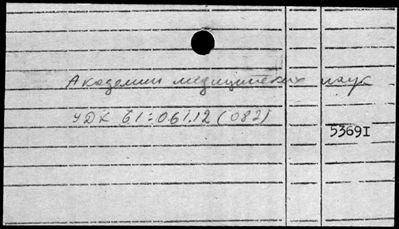 Академии медицинских наук
УДК 61:061.12(082)
5369I